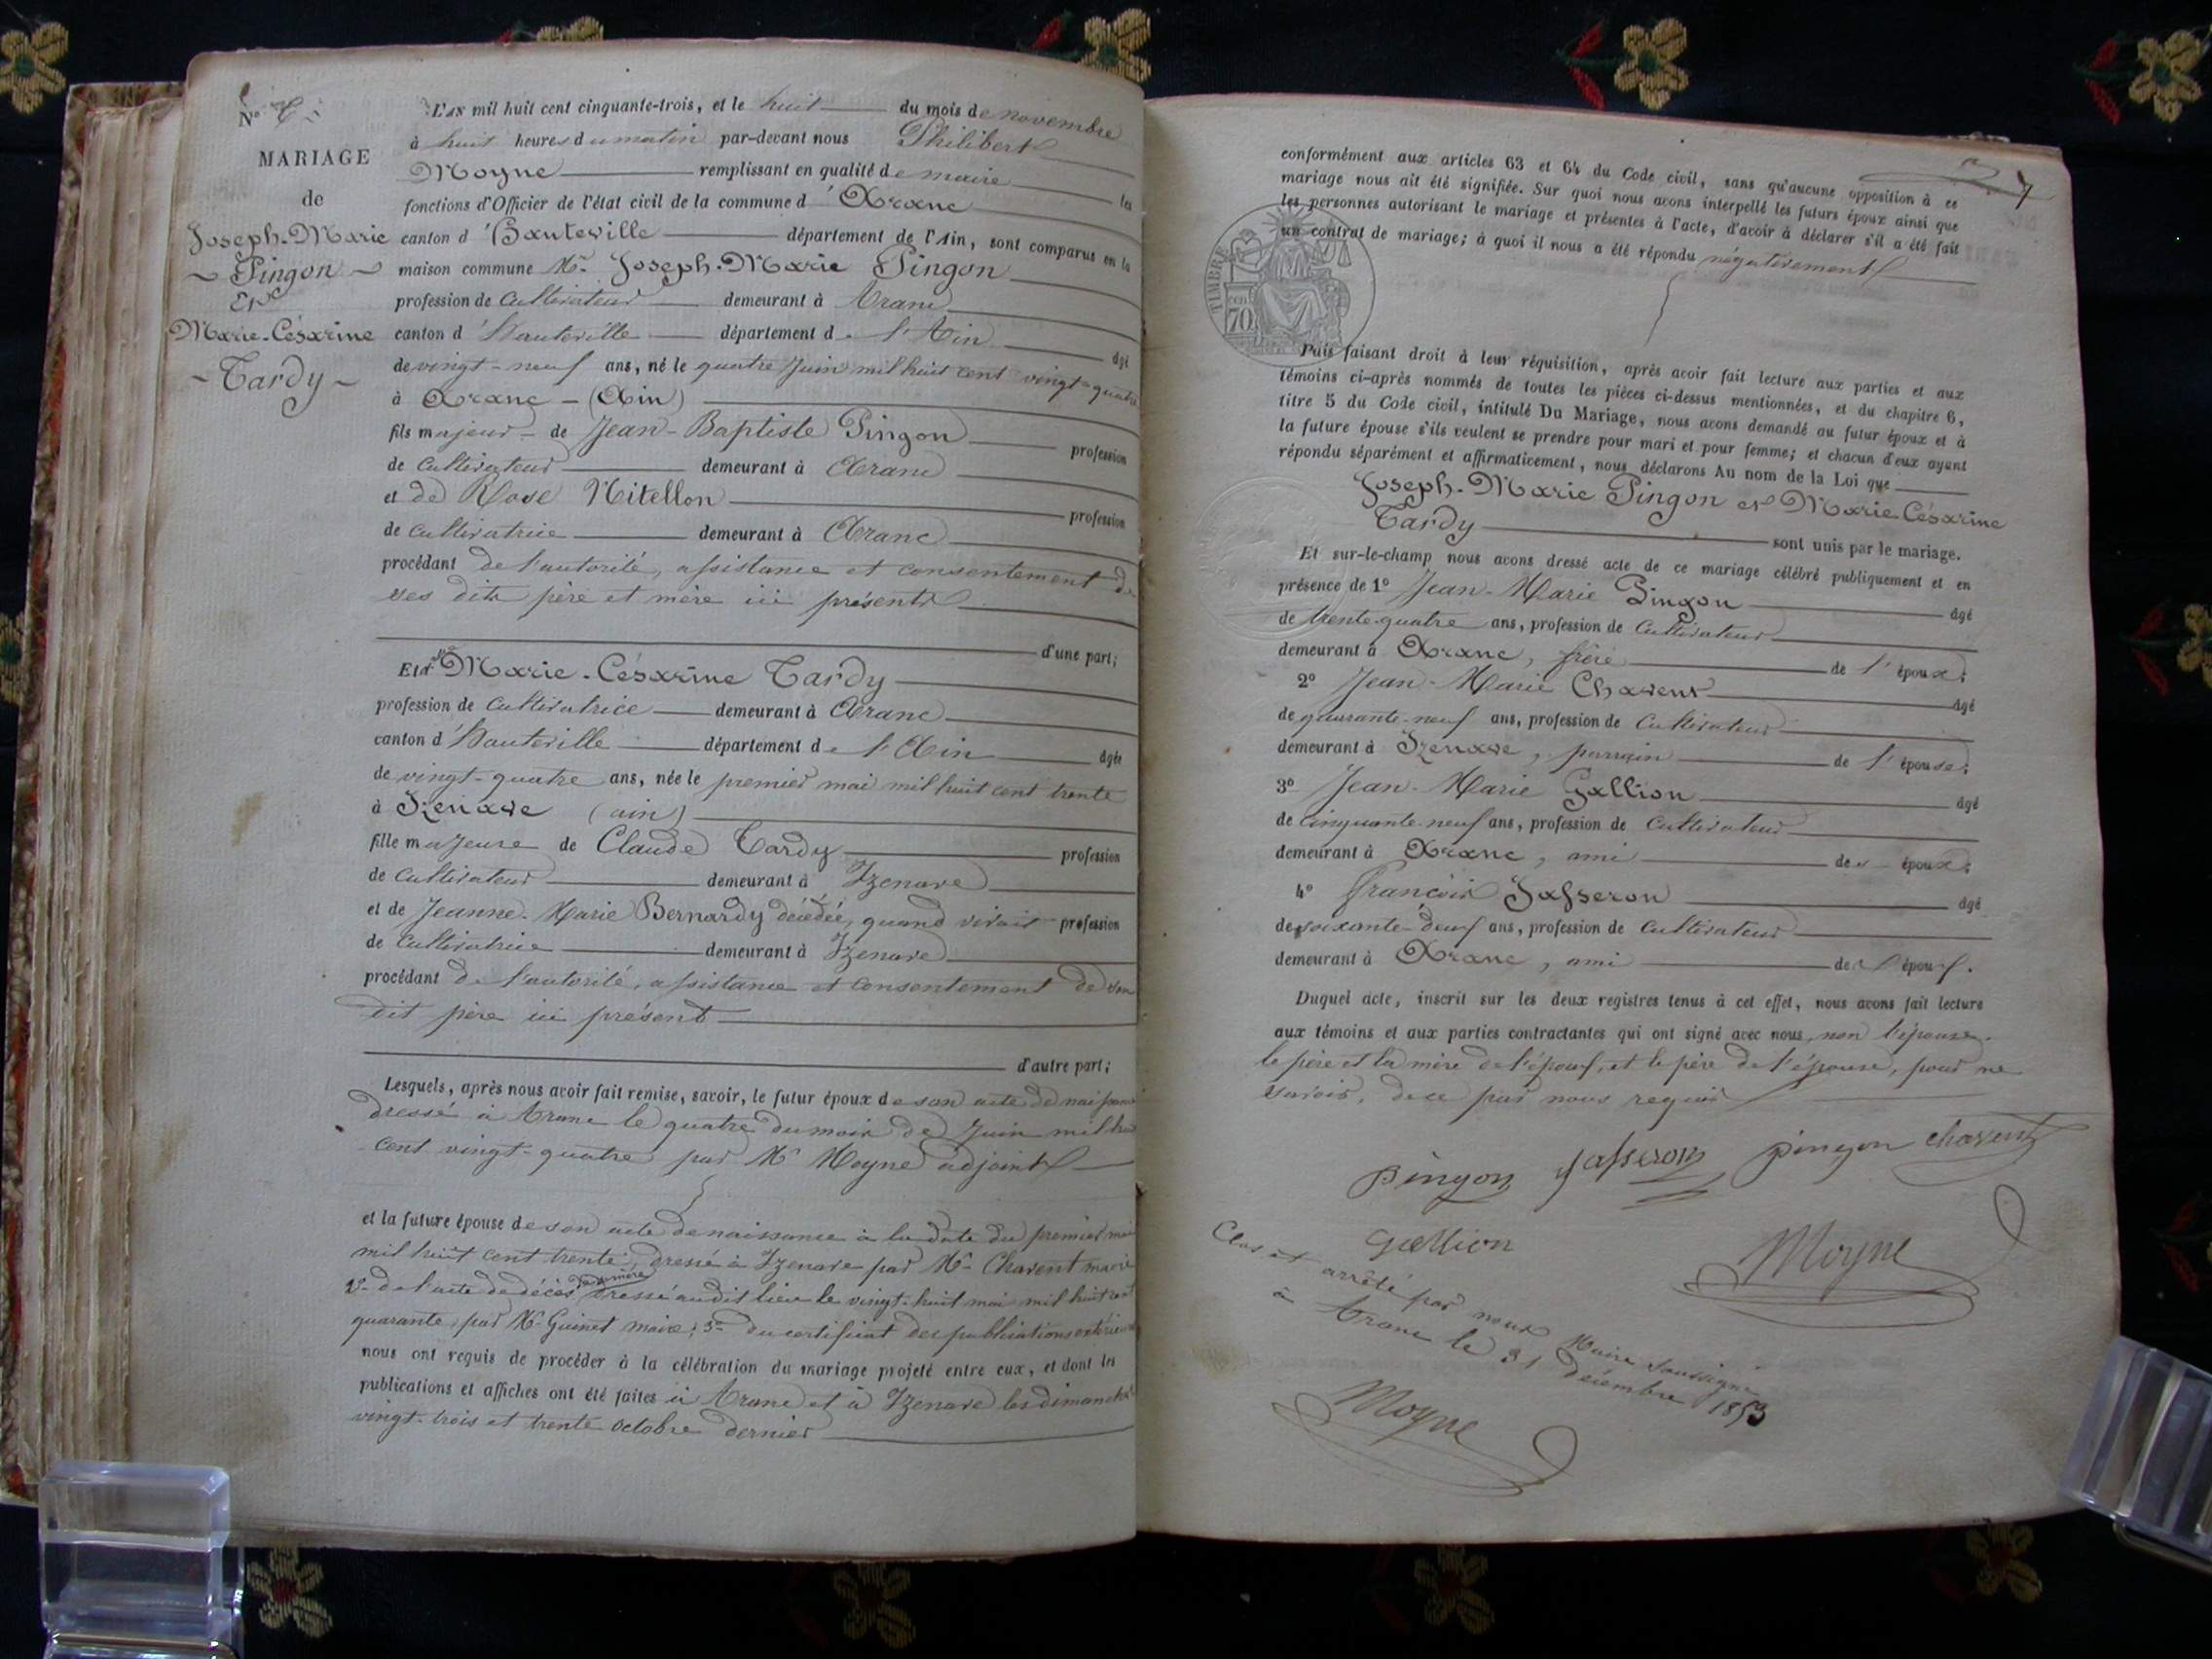 N°
MARIAGE
de
Joseph-Marie
Pingon
Et
Marie-Césarine
Tardy
L'an mil huit cent cinquante-trois, et le huit du mois de novembre
à huit heures du matin par-devant nous Philibert
Moyne remplissant en qualité de maire les
fonctions d'Officier de l'état civil de la commune d'Aranc
canton d'Hauteville département de l'Ain, sont comparus en la
maison commune Mr. Joseph-Marie Pingon
profession de Cultivateur demeurant à Aranc
canton d'hauteville département de l'Ain âgé
de vingt-neuf ans, né le quatre Juin mil huit cent vingt-quatre
à Aranc - (Ain)
fils majeur de Jean-Baptiste Pingon profession
de Cultivateur demeurant à Aranc
et de Rose Nitellon profession
de cultivatrice demeurant à Aranc
procédant de l'autorité, assistance et consentement de
ses dits père et mère ici présents
d'une part;
Et Marie-Césarine Tardy
profession de Cultivatrice demeurant à Aranc
canton d'hauteville département de l'Ain âgée
de vingt-quatre ans, née le premier mai mil huit cent trente
à Izenave (ain)
fille majeure de Claude Tardy profession
de cultivateur demeurant à Izenave
et de Jeanne-Marie Bernardy décédée, quand vivait profession
de Cultivatrice demeurant à Izenave
procédant de l'autorité, assistance et consentement de son
dit père ici présent
d'autre part;
Lesquels, après nous avoir fait remise, savoir, le futur époux de son acte de naissance
dressé à Aranc le quatre du mois de Juin mil huit
cent vingt-quatre par Mr Moyne adjoint
et la future épouse de son acte de naissance à la date du premier mai
mil huit cent trente, dressé à Izenave par Mr Charent maire
2° de l'acte de décès de sa mère dressé audit lieu le vingt-huit mai mil huit cent
quarante, par Mr Guinet maire; 3° du certificat des publications
nous ont requis de procéder à la célébration du mariage projeté entre eux, et dont les
publications et affiches ont été faites à Aranc et à Izenave les dimanches
vingt-trois et trente octobre dernier
7
conformément aux articles 63 et 64 du Code civil, sans qu'aucune opposition à ce
mariage nous ait été signifiée. Sur quoi nous avons interpellé les futurs époux ainsi que
les personnes autorisant le mariage et présentes à l'acte, d'avoir à déclarer s'il a été fait
un contrat de mariage; à quoi il nous a été répondu négativement
TIMBRE
cen
70
Puis faisant droit à leur réquisition, après avoir fait lecture aux parties et aux
témoins ci-après nommés de toutes les pièces ci-dessus mentionnées, et du chapitre 6,
titre 5 du Code civil, intitulé Du Mariage, nous avons demandé au futur époux et à
la future épouse s'ils veulent se prendre pour mari et pour femme; et chacun d'eux ayant
répondu séparément et affirmativement, nous déclarons Au nom de la Loi que
Joseph-Marie Pingon et Marie-Césarine
Tardy sont unis par le mariage.
Et sur-le-champ nous avons dressé acte de ce mariage célébré publiquement et en
présence de 1° Jean-Marie Pingon âgé
de trente-quatre ans, profession de Cultivateur
demeurant à Aranc, frère de l'époux;
2° Jean-Marie Charent âgé
de quarante-neuf ans, profession de Cultivateur
demeurant à Izenave, parrain de l'épouse;
3° Jean-Marie Gallion âgé
de cinquante-neuf ans, profession de Cultivateur
demeurant à Aranc, ami des époux;
4° françois Jasseron âgé
de soixante-deux ans, profession de Cultivateur
demeurant à Aranc, ami de l'époux.
Duquel acte, inscrit sur les deux registres tenus à cet effet, nous avons fait lecture
aux témoins et aux parties contractantes qui ont signé avec nous, non l'épouse.
le père et la mère de l'époux, et le père de l'épouse, pour ne
savoir, de ce par nous requis
pingon Jasseron pingon charent
Gallion
Moyne
Clos et arrêté par nous Maire soussigné
à Aranc le 31 décembre 1853
Moyne